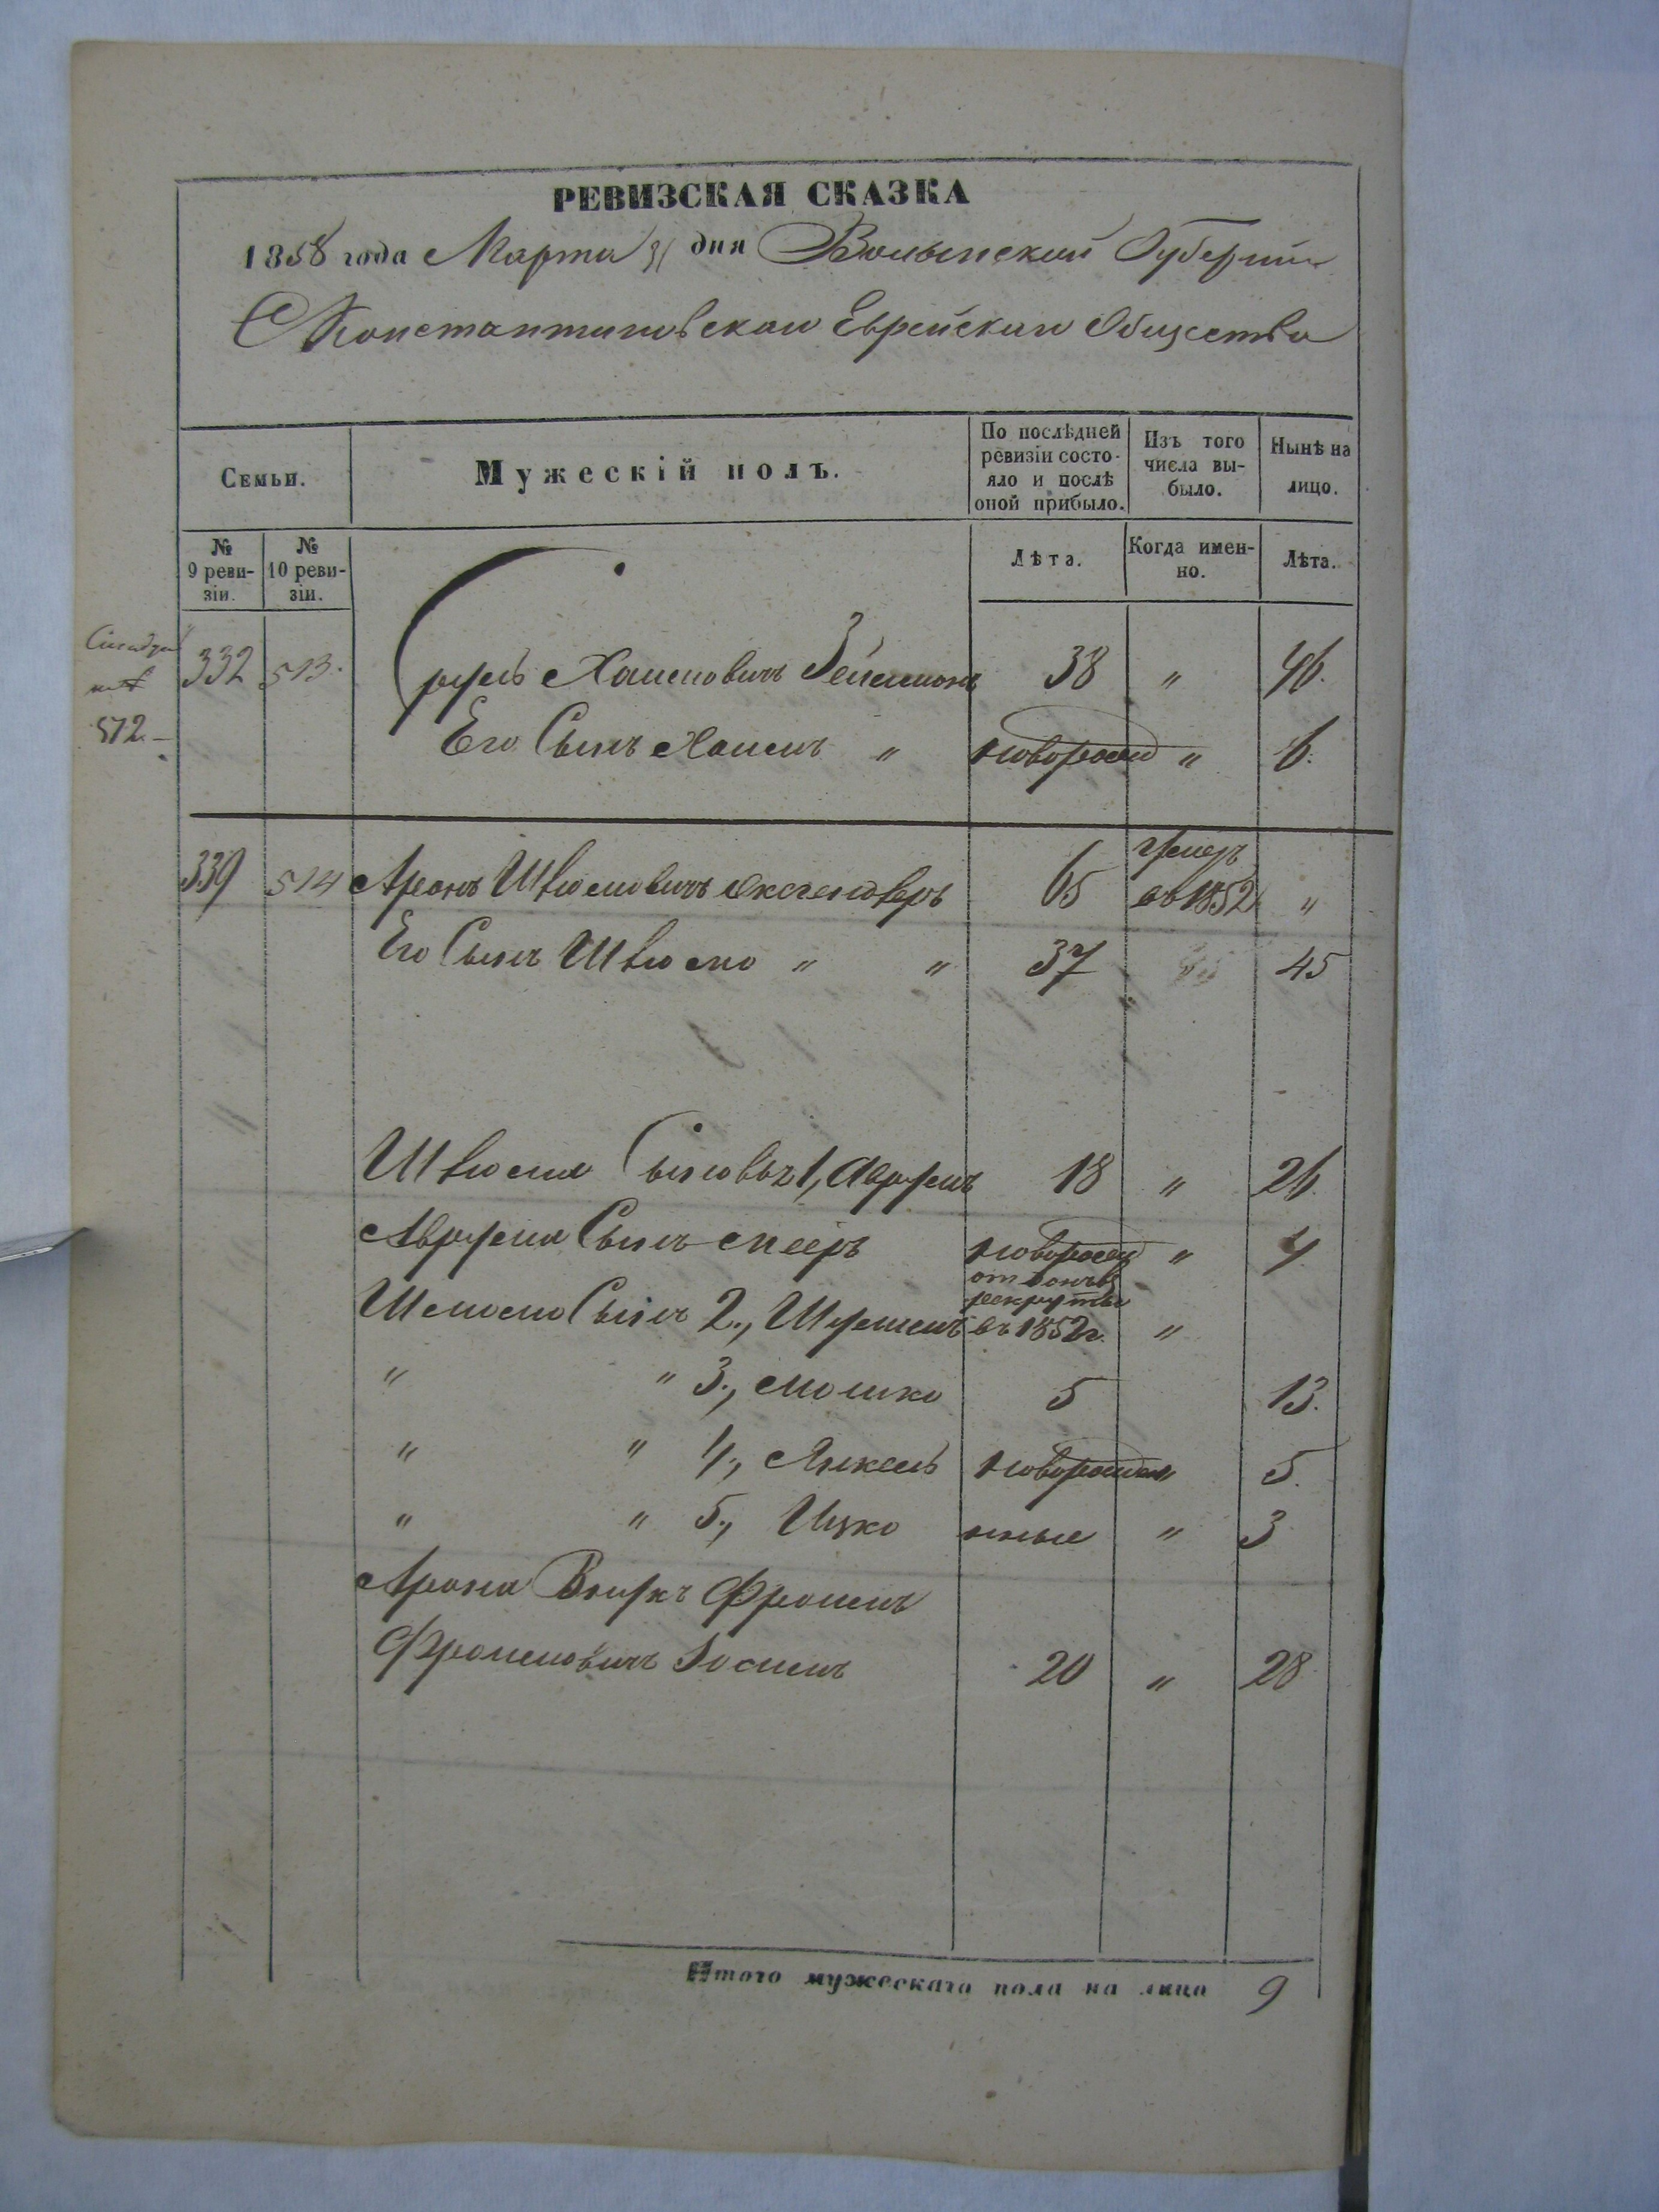 РЕВИЗСКАЯ СКАЗКА
1858 года Марта 31 дня Волынской Губерніи
С Константиновскаи Еврейскаи Общества
Семьи.
Мужескій полъ.
По послѣдней ревизіи состояло и послѣ оной прибыло.
Изъ того числа выбыло.
Нынѣ на лицо.
№ 9 ревизіи.
№ 10 ревизіи.
Лѣта.
Когда именно.
Лѣта.
332 513. Сруль Хаимовичъ 38 " 46.
572.
Его Сынъ Хаимъ " новорожд " 6.
339 514 Аронъ 65 умеръ въ 1852 "
Его Сынъ " " 37 45
Сыновья 1, Аврумъ 18 " 26.
Аврума Сынъ Мееръ новорожд " 4
Сынъ 2., въ рекруты въ 1852 г. "
" " 3., Мошко 5 13.
" " 4., Янкель новорожден " 5.
" " 5., Ицко нные " 3
Арона Внукъ Фроимъ
Фроимовичъ 20 " 28
Итого мужескаго пола на лицо 9